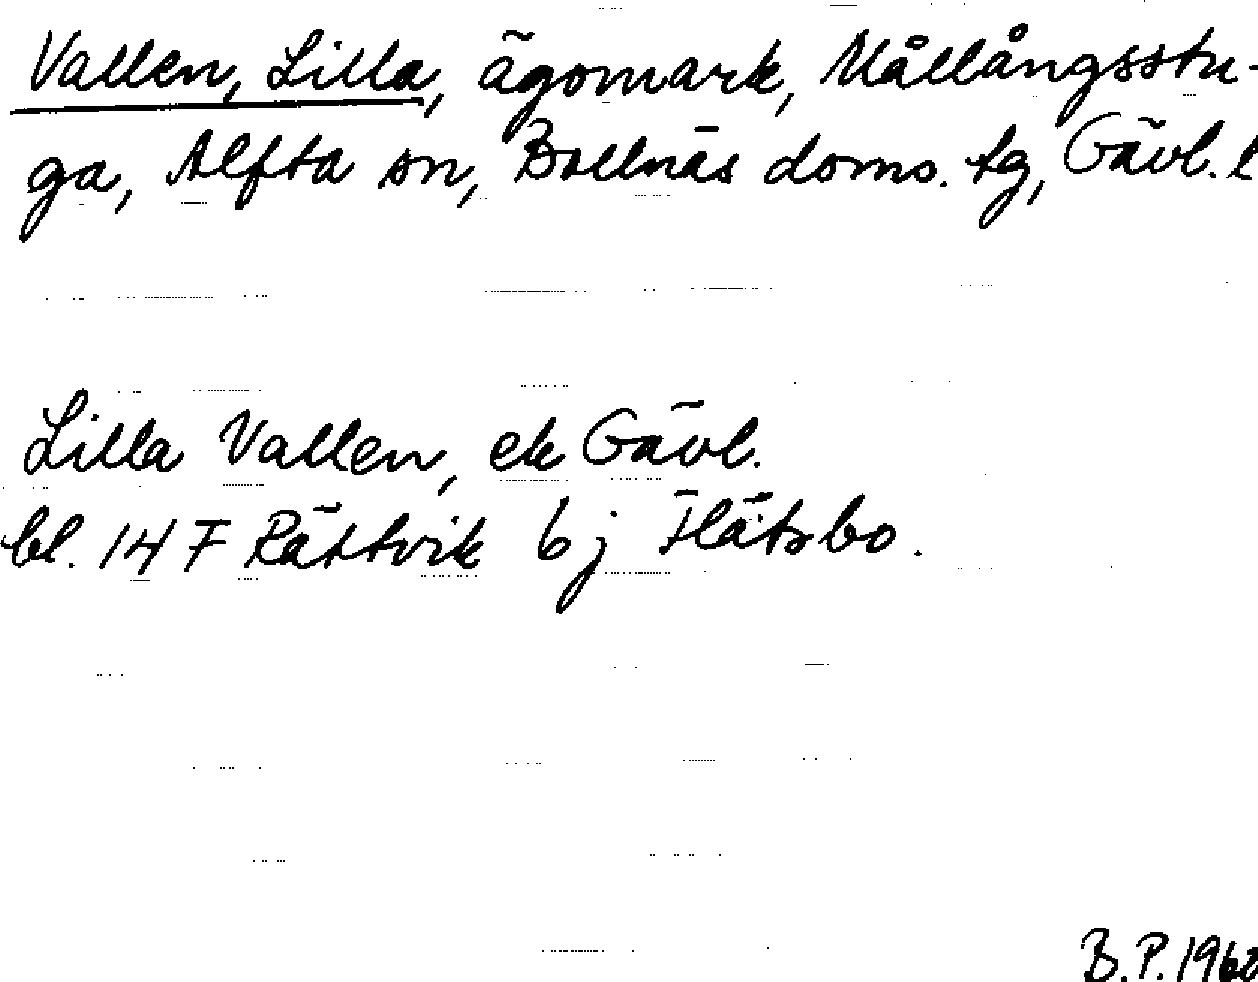 Vallen, Lilla, ägomark, Mållångsstu-
ga, Alfta sn, Bollnäs doms. tg, Gävl. l
Lilla Vallen, ek Gävl.
bl. 14 F Rättvik 6j Flätsbo.
B.P. 1968